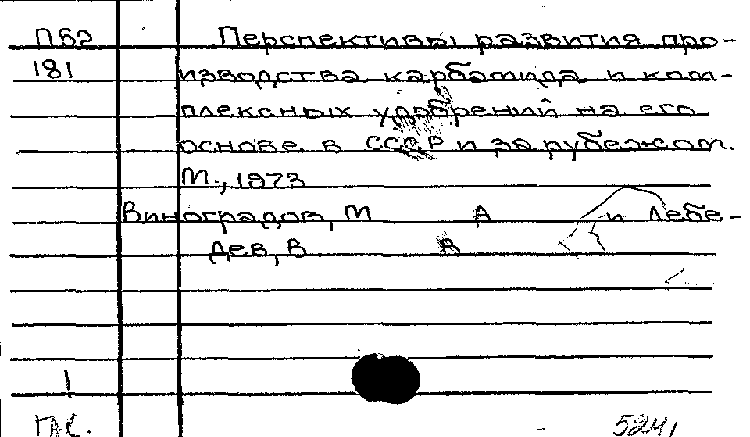 П62 Перспективы развития про-
181 изводства карбамида и ком-
плексных удобрений на его
основе в СССР и за рубежом.
М., 1973
Виноградов, М А и Лебе-
дев, В В